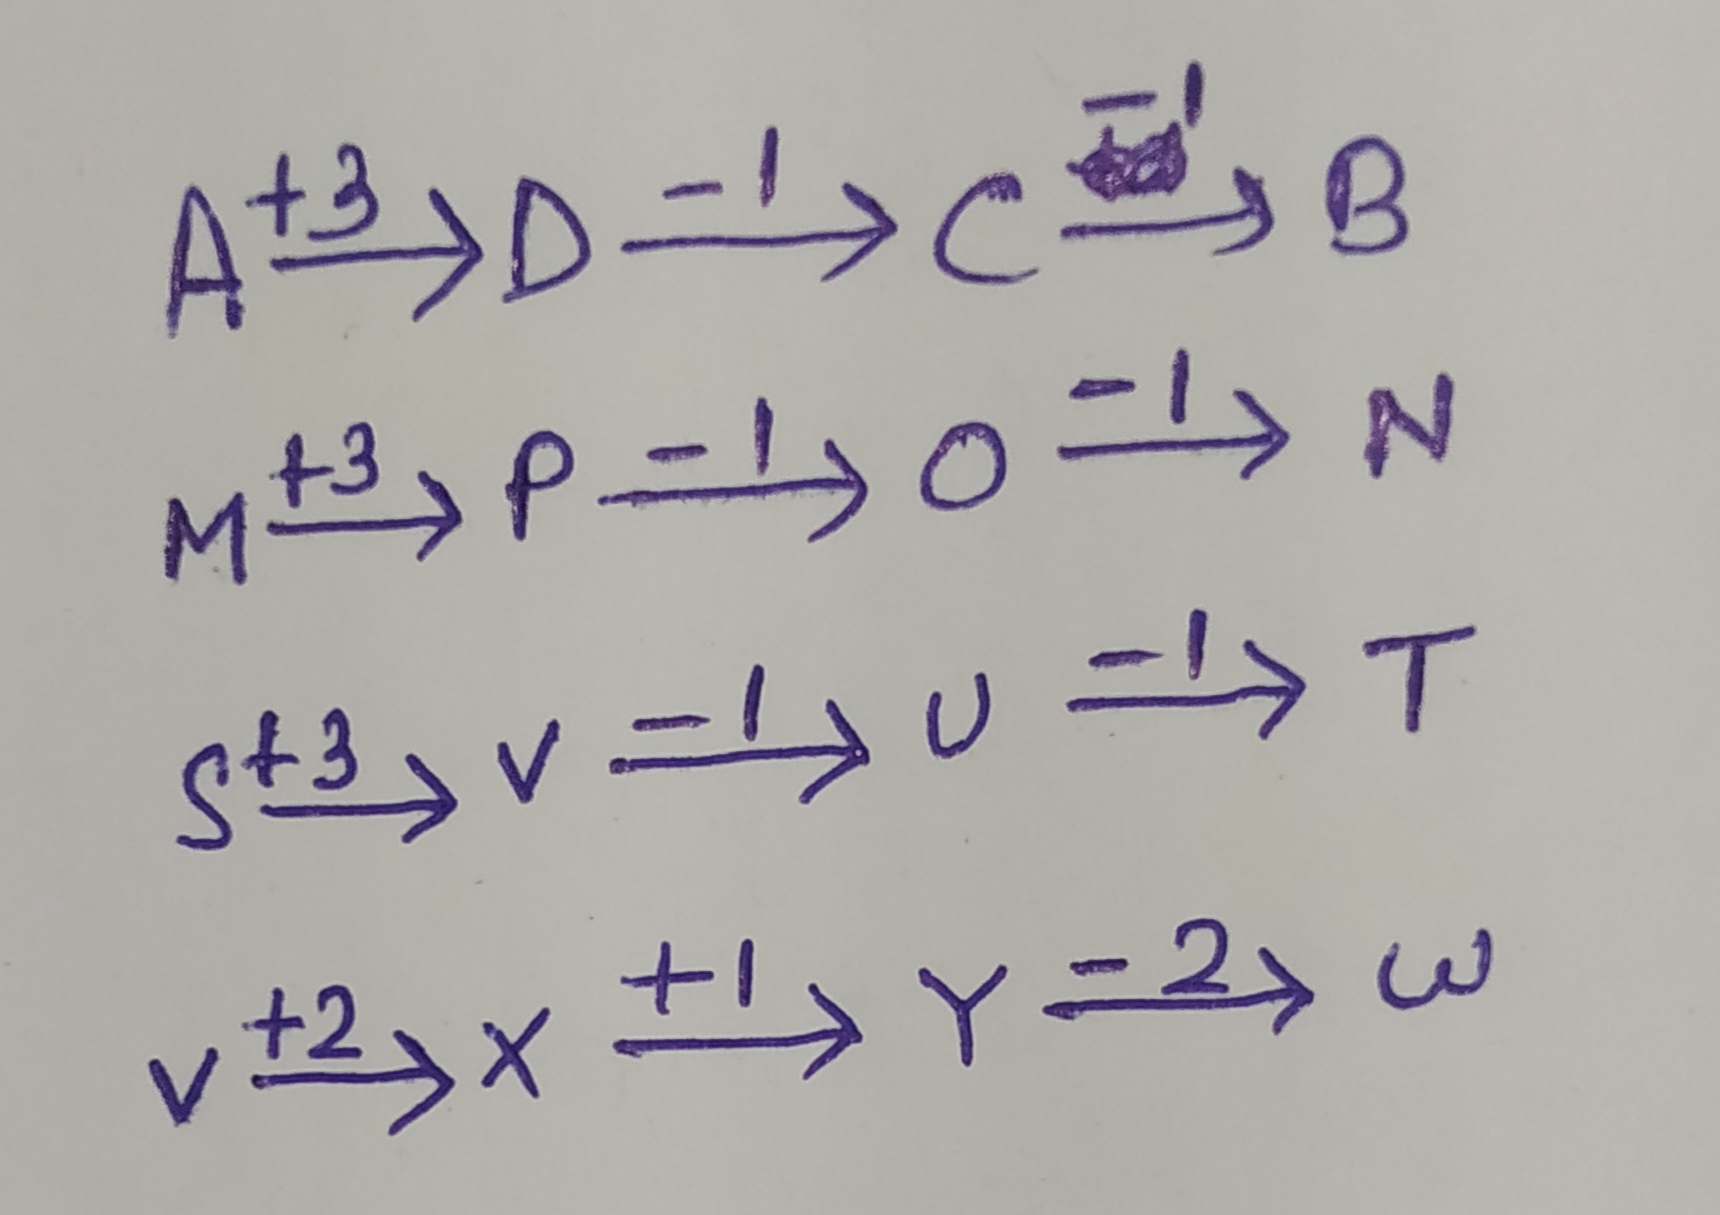 A +3→ D -1→ C -1→ B
M +3→ P -1→ O -1→ N
S +3→ V -1→ U -1→ T
V +2→ X +1→ Y -2→ W